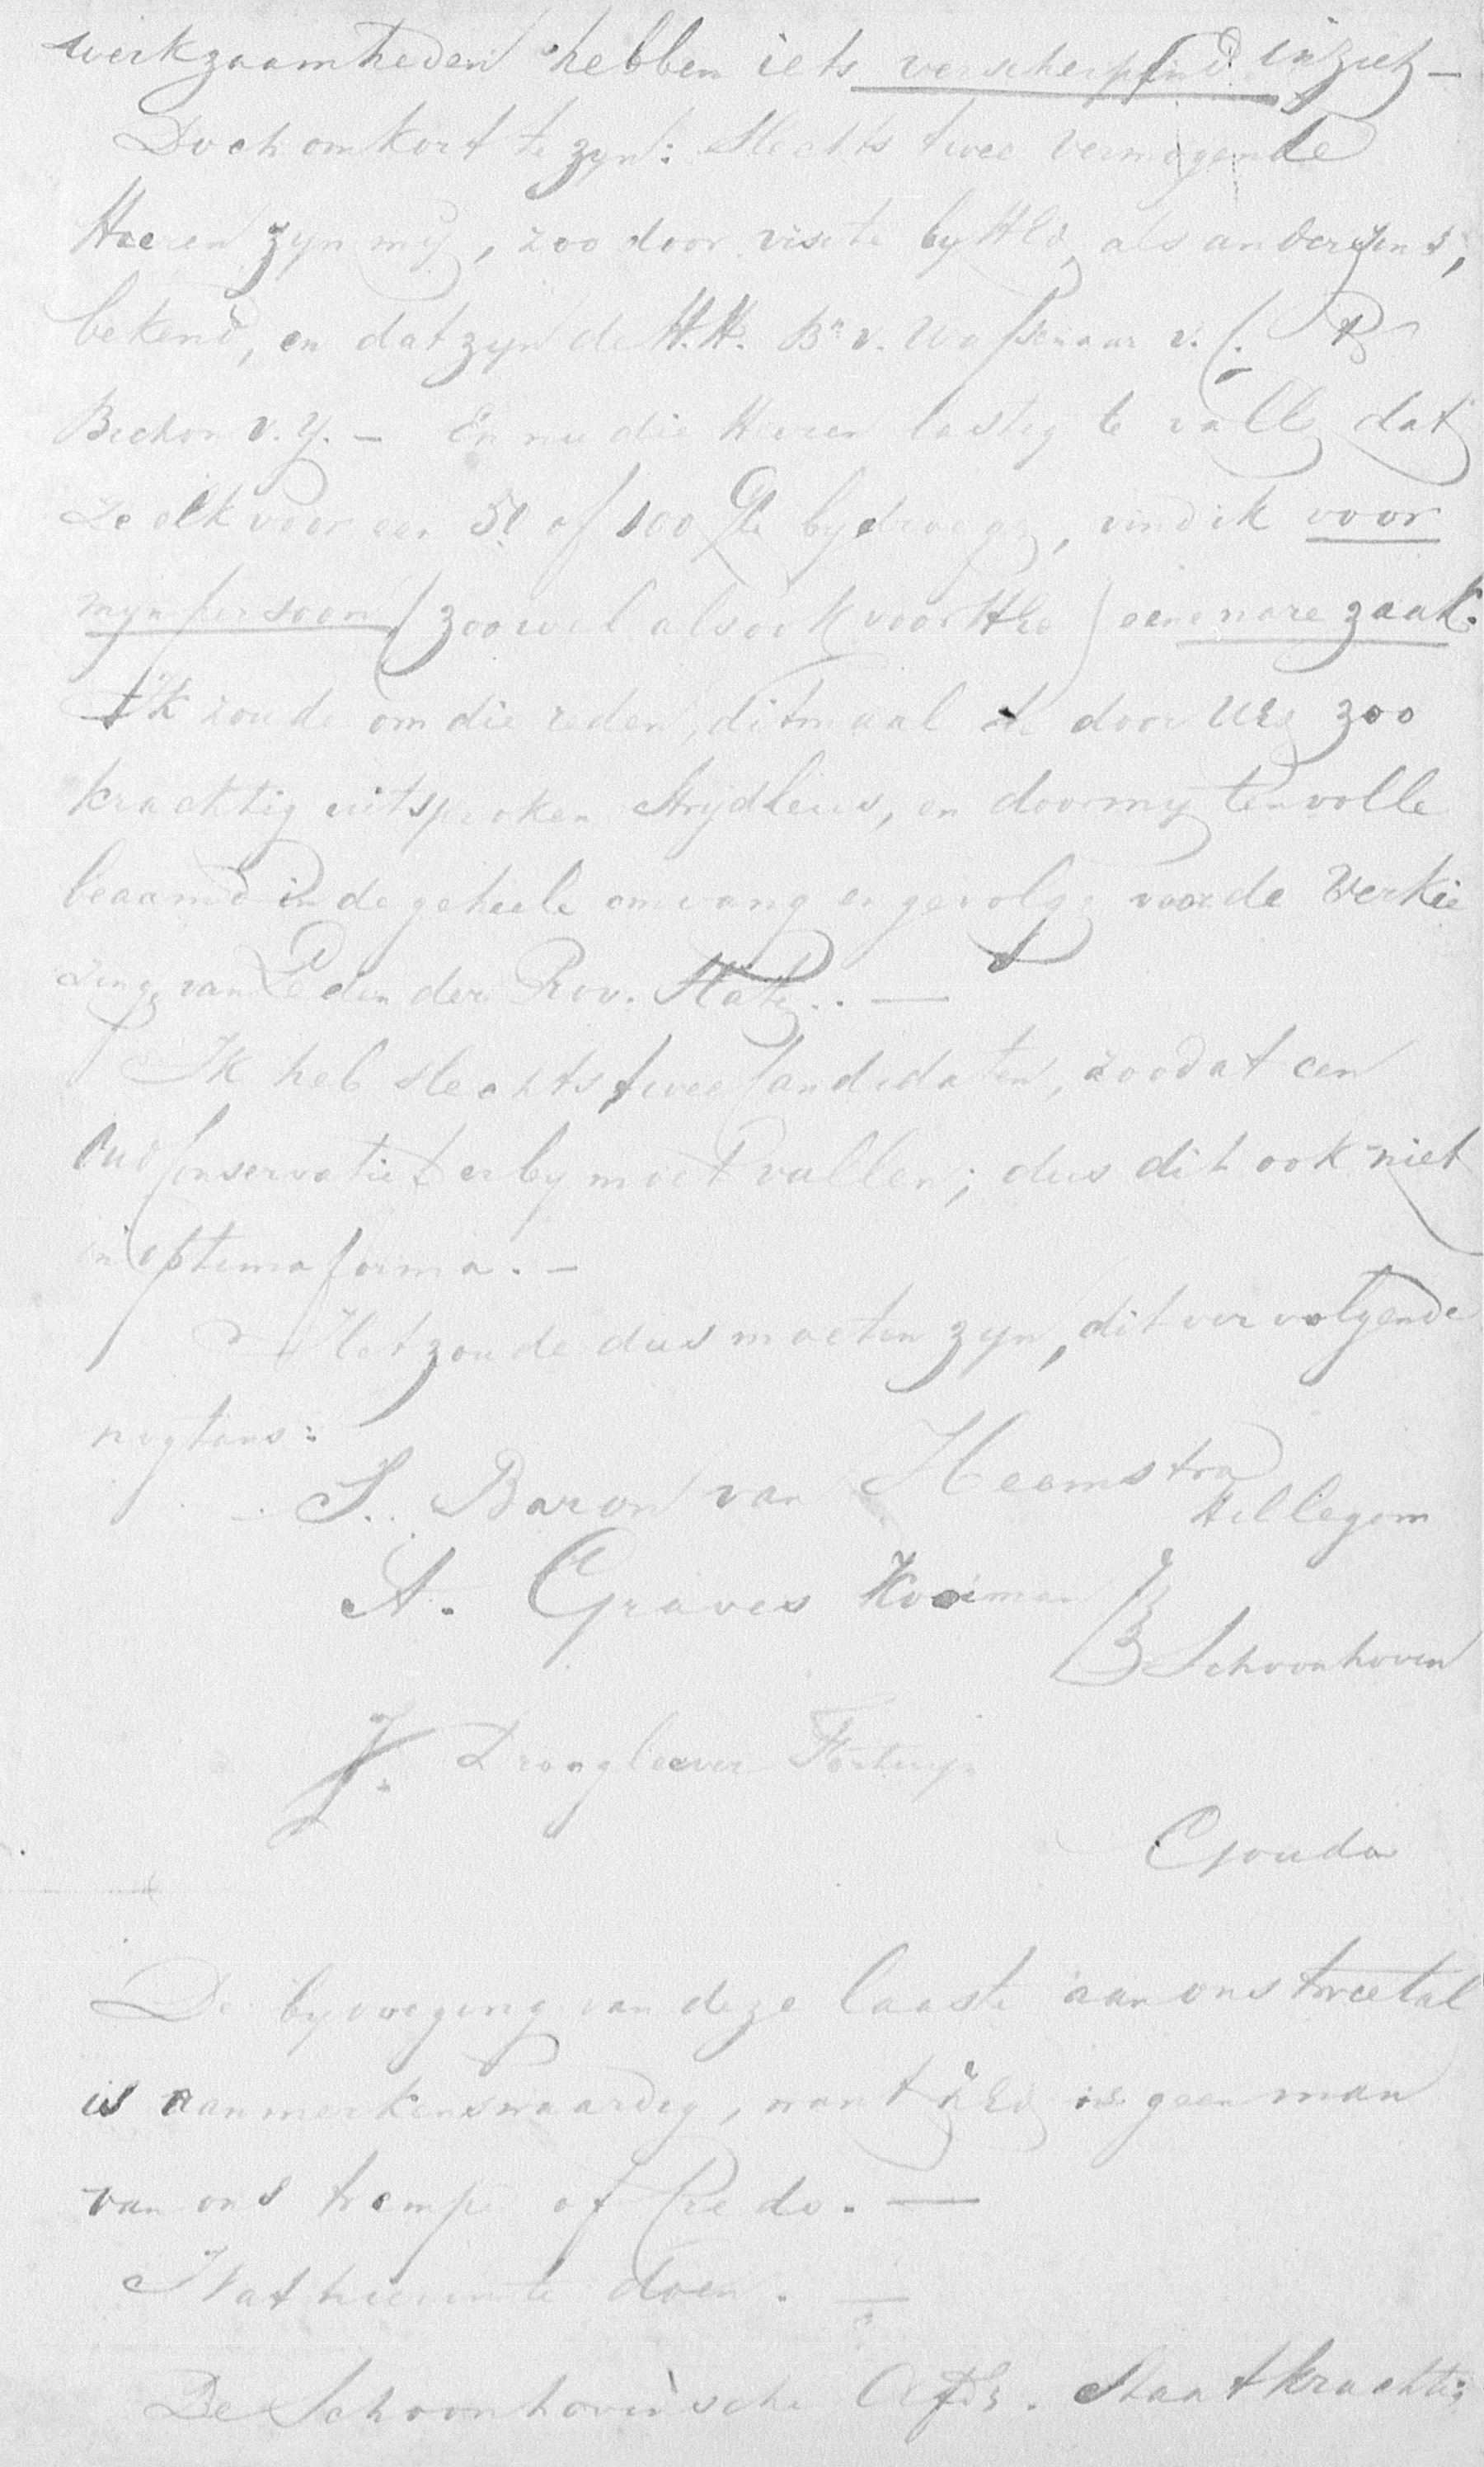 werkzaamheden hebben iets verscherpend in zich —
Doch om kort te zyn: Slechts twee vermogende
Heeren zyn my, zoo door visite by HEd als anderszins,
bekend, en dat zyn de H.H. Bn v. Wassenaar v. C.
Bichon v. Y. — En nu die Heeren lastig te vallen dat
ze elk voor een 50 of 100 Gld bydragen, vind ik voor
myn persoon (zoowel als ook voor HEd) eene nare zaak.
Ik zoude om die reden, ditmaal de door UEd zoo
krachtig uitsproken Strydleus, en door my ten volle
beaamd in de geheele omvang en gevolgen voor de Verkie
zing van Leden der Prov. Staten. —
Ik heb slechts twee Candidaten, zoodat een
Oud Conservatief er by moet vallen; dus dit ook niet
in optima forma. —
Het zoude dus moeten zyn, dit vervolgende
nogtans:
S. Baron van Heemstra
Hillegom
A. Graves Kooiman
Schoonhoven
J. Droogleever Fortuyn
Gouda
De byvoeging van deze laaste aan ons tweetal
is aanmerkenswaardig, want ZEd is geen man
van ons tremp of Credo. —
Wat hierin te doen. —
De Schoonhovensche Afd. Staatkrachtig